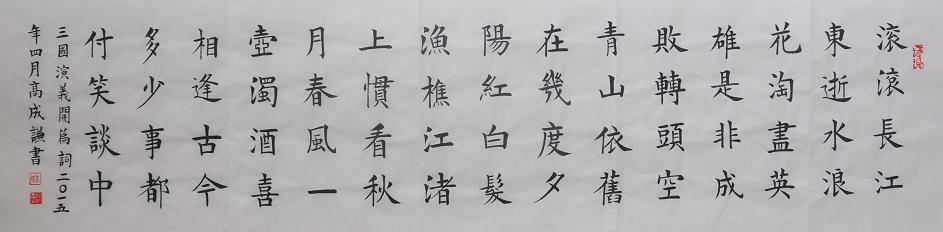 滚滚長江
東逝水浪
花淘盡英
雄是非成
敗轉頭空
青山依舊
在幾度夕
陽紅白髮
漁樵江渚
上慣看秋
月春風一
壺濁酒喜
相逢古今
多少事都
付笑談中
三國演義開篇詞二〇一五
年四月高成謙書